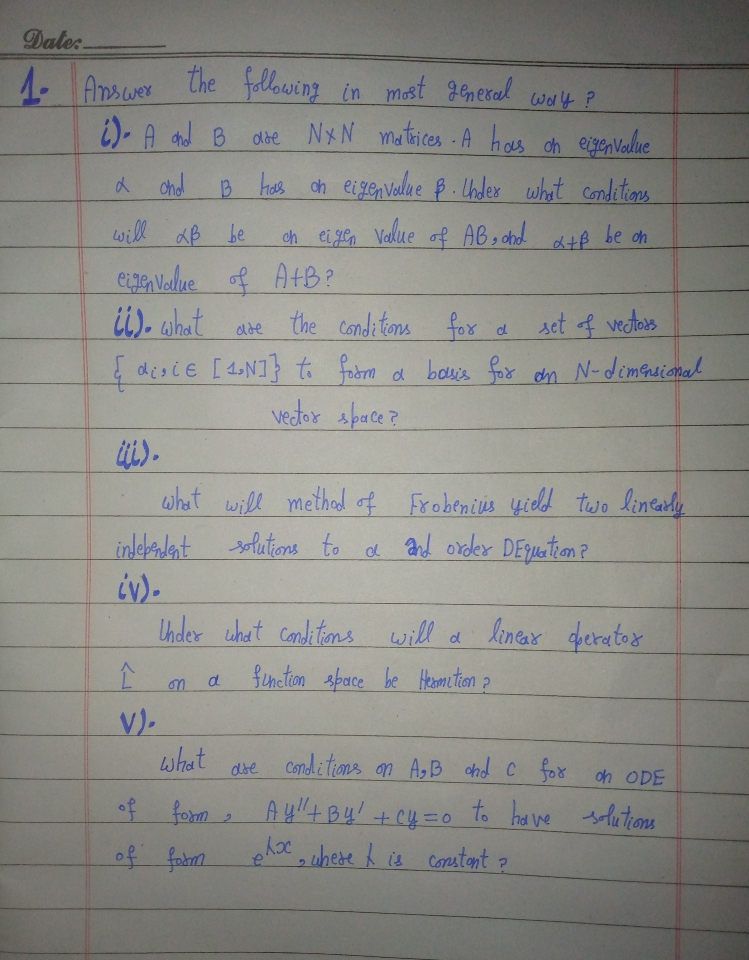 Date:
1- Answer the following in most general way?
i)- A and B are N×N matrices. A has an eigenvalue
α and B has an eigenvalue β. Under what conditions
will αβ be an eigen value of AB, and α+β be an
eigenvalue of A+B?
ii)- what are the conditions for a set of vectors
{ ai, i ∈ [1,N]} to form a basis for an N-dimensional
vector space?
iii)-
what will method of Frobenius yield two linearly
independent solutions to a 2nd order DEquation?
iv)-
Under what conditions will a linear operator
L̂ on a function space be Hermition?
v)-
what are conditions on A,B and C for an ODE
of form, Ay''+By'+cy=0 to have solutions
of form e^λx, where λ is constant?